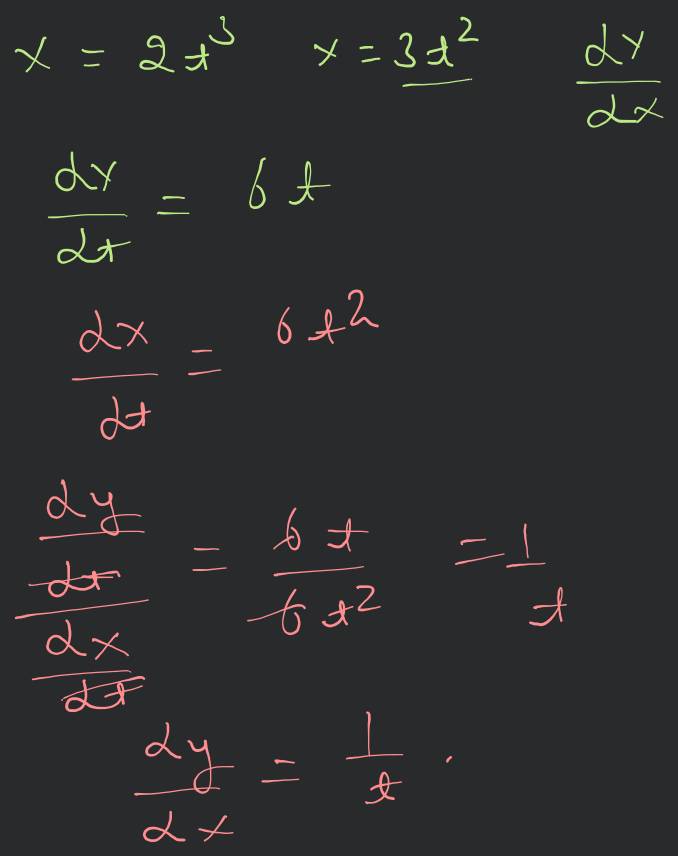 x = 2t³ x = 3t² dy/dx
dy/dt = 6t
dx/dt = 6t²
(dy/dt)/(dx/dt) = 6t/6t² = 1/t
dy/dx = 1/t .